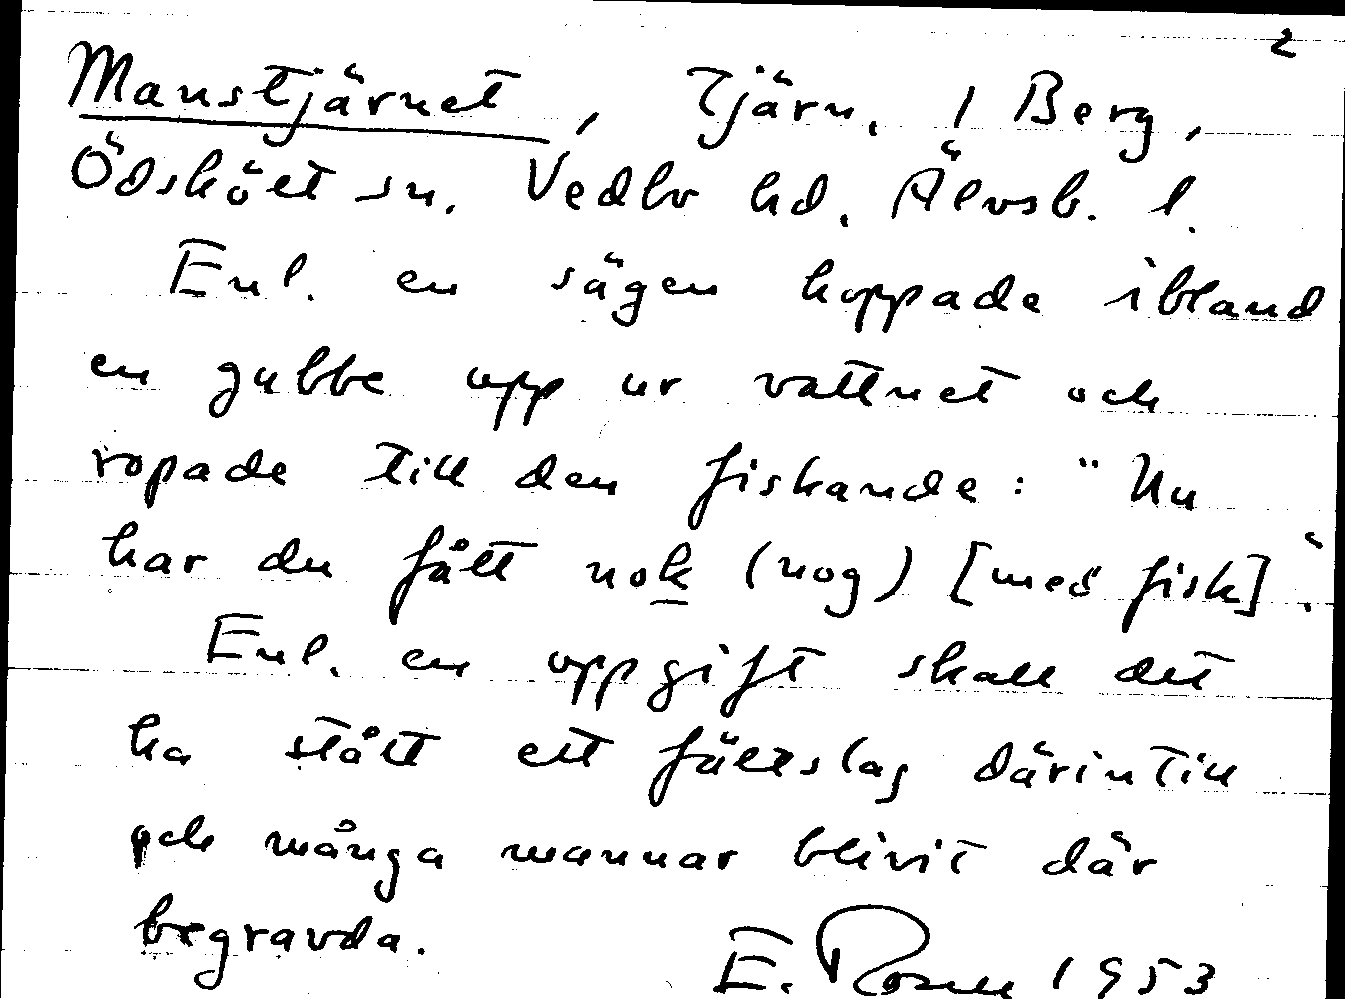 2
Manstjärnet, Tjärn. 1 Berg,
Ödsköet sn. Vedbo hd. Älvsb. l.
Enl. en sägen hoppade ibland
en gubbe upp ur vattnet och
ropade till den fiskande: "Nu
har du fått nok (nog) [med fisk]".
Enl. en uppgift skall det
ha stått ett fältslag därintill
och många mannar blivit där
begravda.
E. Rosell 1953